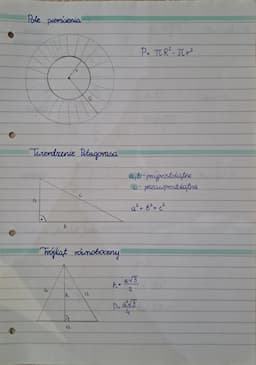 Pole pierścienia
r
R
P= πR² - πr²
Twierdzenie Pitagorasa
a, b - przyprostokątne
c - przeciwprostokątna
a
c
b
a² + b² = c²
Trójkąt równoboczny
a
h
a
a
h = a√3/2
P= a²√3/4